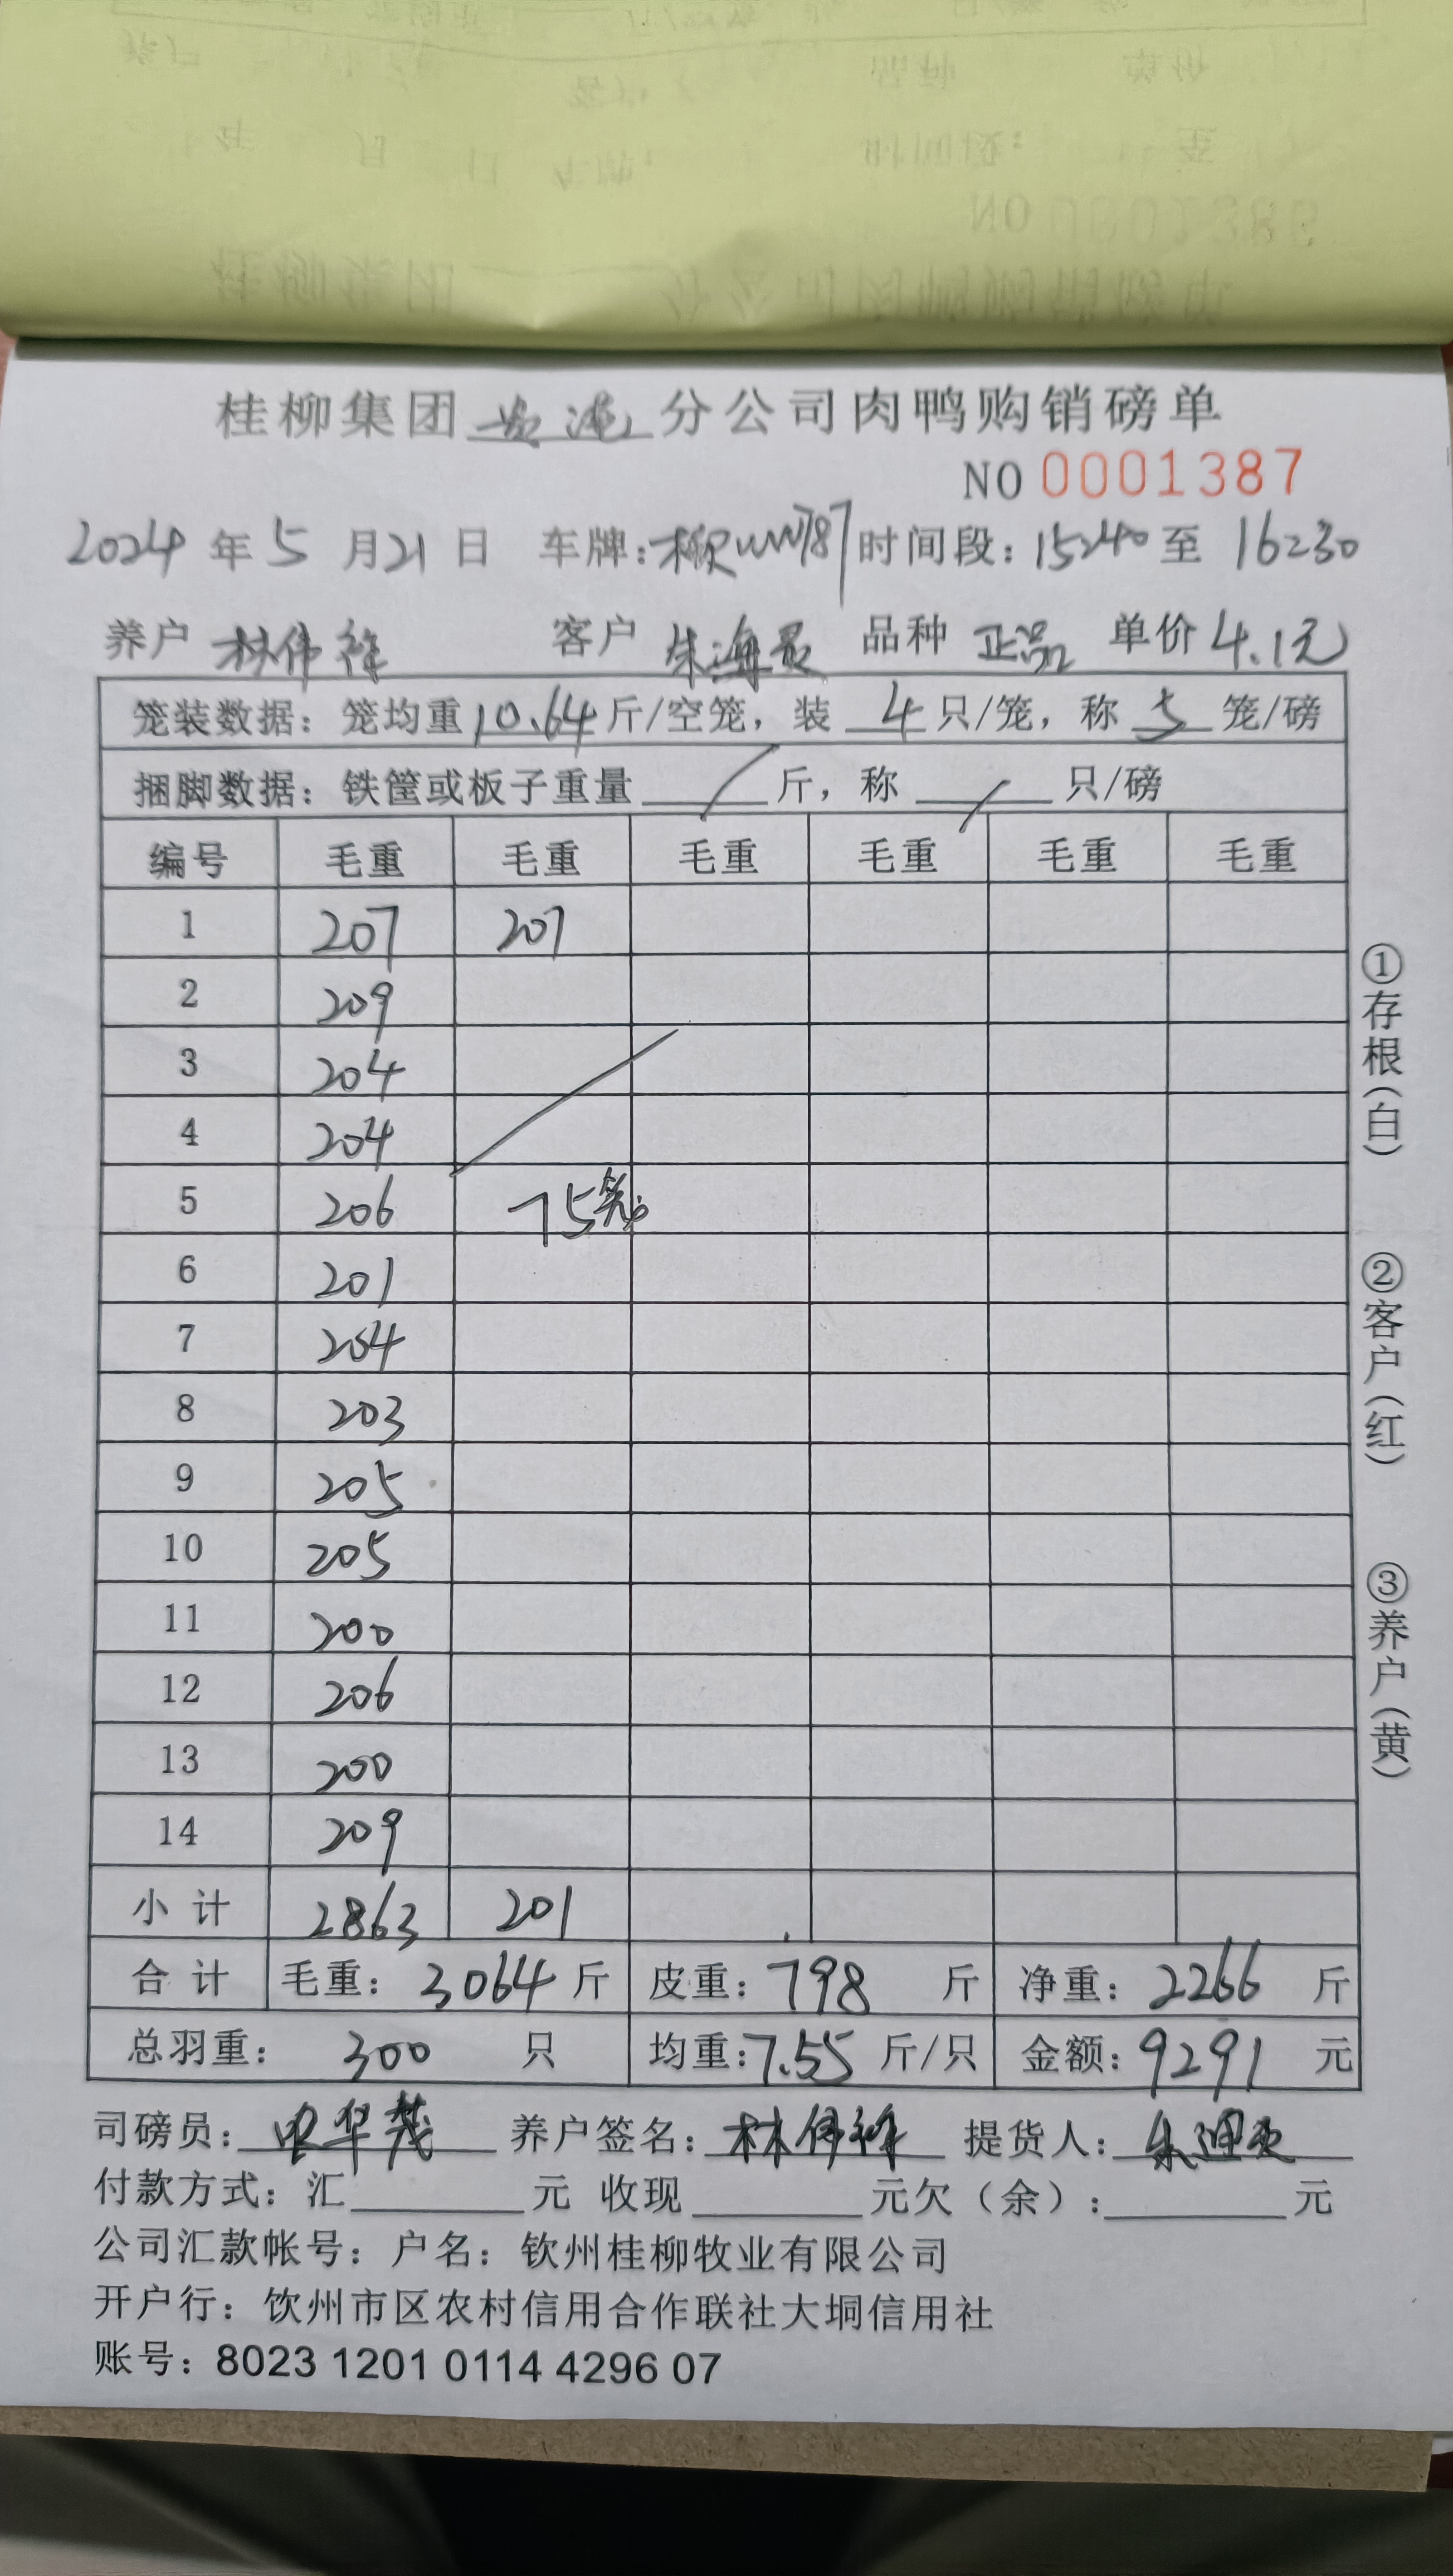 桂柳集团 分公司肉鸭购销磅单
NO 0001387
2024年5月21日 车牌: 时间段:15:40至16:30
养户 林伟 客户 朱海 品种 正品 单价4.1元
笼装数据：笼均重10.64斤/空笼，装4只/笼，称5笼/磅
捆脚数据：铁筐或板子重量 斤，称 只/磅
编号 毛重 毛重 毛重 毛重 毛重 毛重
1 207 201
2 209
3 204
4 204
5 206 75笼
6 201
7 204
8 203
9 205
10 205
11 200
12 206
13 200
14 209
小计 2863 201
合计 毛重：3064斤 皮重：798斤 净重：2266斤
总羽重：300只 均重：7.55斤/只 金额：9291元
司磅员： 养户签名：林伟 提货人：朱
付款方式：汇 元 收现 元欠（余）： 元
公司汇款帐号：户名：钦州桂柳牧业有限公司
开户行：饮州市区农村信用合作联社大垌信用社
账号：8023 1201 0114 4296 07
①存根(白)
②客户(红)
③养户(黄)